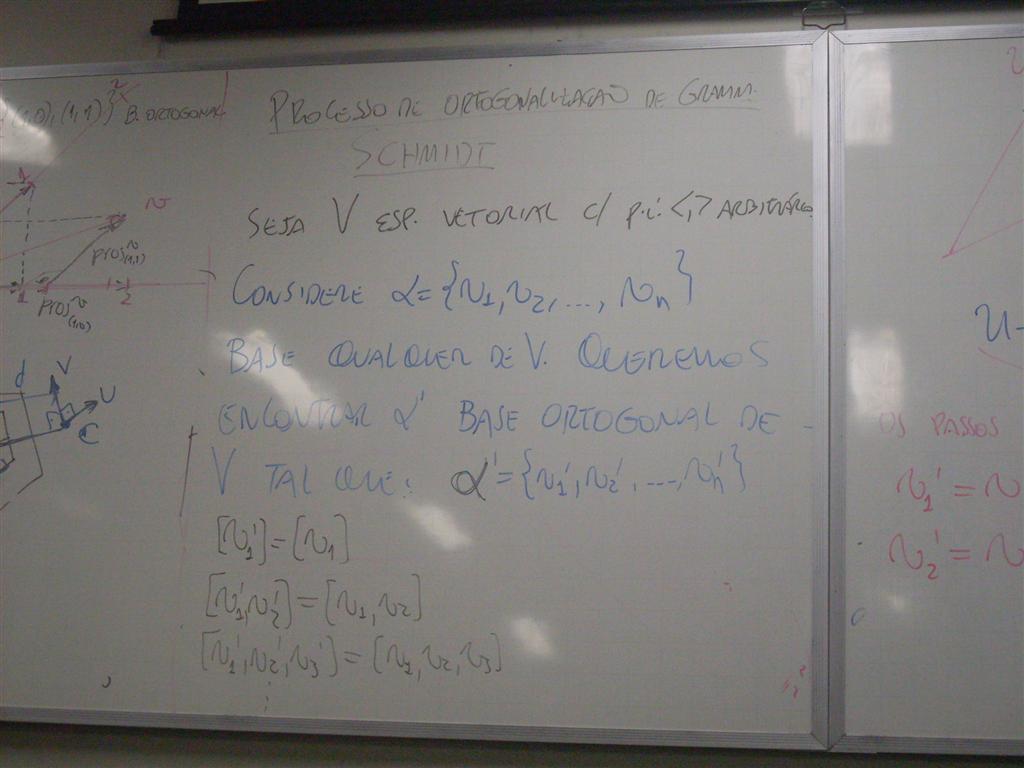 (1,0),(1,1)} B. ORTOGONAL
PROCESSO DE ORTOGONALIZAÇÃO DE GRAMM.
SCHMIDT
SEJA V ESP. VETORIAL C/ P.I. <,> ARBITRÁRIO
CONSIDERE α={v1,v2,...,vn}
BASE QUALQUER DE V. QUEREMOS
ENCONTRAR α' BASE ORTOGONAL DE
V TAL QUE: α'={v1',v2',...,vn'}
[v1']=[v1]
[v1',v2']=[v1,v2]
[v1',v2',v3']=[v1,v2,v3]
v
PROJ v (1,1)
1 2
PROJ v (1,0)
d V U
C
U-
OS PASSOS
v1'=v
v2'=v